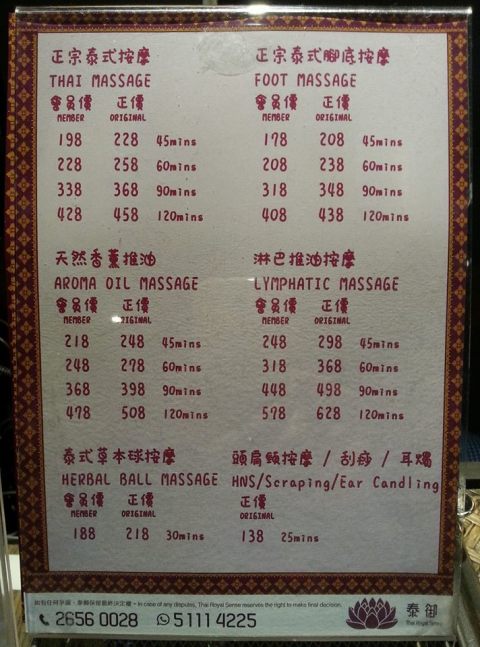 正宗泰式按摩
THAI MASSAGE
會員價 正價
MEMBER ORIGINAL
198 228 45mins
228 258 60mins
338 368 90mins
428 458 120mins
正宗泰式腳底按摩
FOOT MASSAGE
會員價 正價
MEMBER ORIGINAL
178 208 45mins
208 238 60mins
318 348 90mins
408 438 120mins
天然香薰推油
AROMA OIL MASSAGE
會員價 正價
MEMBER ORIGINAL
218 248 45mins
248 278 60mins
368 398 90mins
478 508 120mins
淋巴推油按摩
LYMPHATIC MASSAGE
會員價 正價
MEMBER ORIGINAL
248 298 45mins
318 368 60mins
448 498 90mins
578 628 120mins
泰式草本球按摩
HERBAL BALL MASSAGE
會員價 正價
MEMBER ORIGINAL
188 218 30mins
頭肩頸按摩 / 刮痧 / 耳燭
HNS/Scraping/Ear Candling
正價
ORIGINAL
138 25mins
如有任何爭議，泰御保留最終決定權。In case of any disputes, Thai Royal Sense reserves the right to make final decision.
2656 0028 5111 4225
泰御
Thai Royal Sense